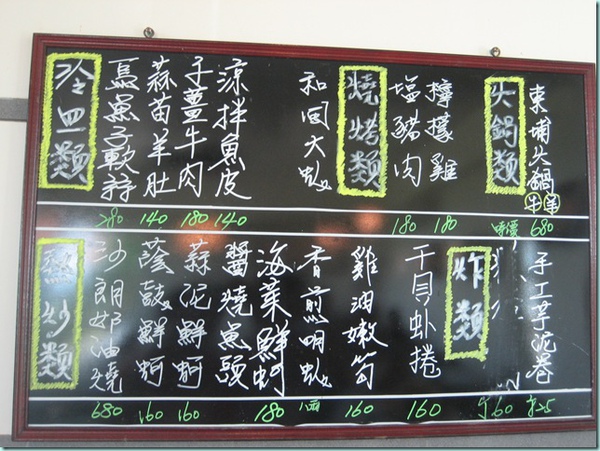 火鍋類
東埔火鍋 牛 羊
680
時價
燒烤類
檸檬雞
180
塩豬肉
180
和風大
冷盤類
涼拌魚皮
140
子薑牛肉
180
蒜苗羊肚
140
烏魚子軟
280
炸類
手工芋泥卷
干貝虾捲
160
熱炒類
雞油嫩筍
160
香煎明
海菜鮮蚵
180
醬燒魚頭
蒜泥鮮蚵
160
蔭豉鮮蚵
160
沙朗奶油燒
680